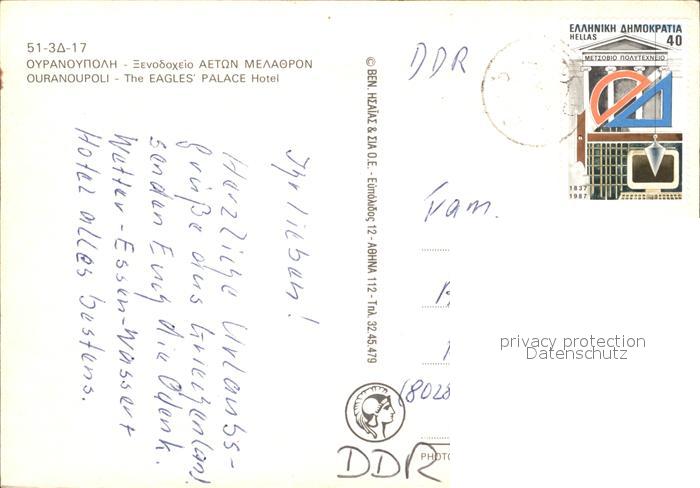 51-3Δ-17
ΟΥΡΑΝΟΥΠΟΛΗ - Ξενοδοχείο ΑΕΤΩΝ ΜΕΛΑΘΡΟΝ
OURANOUPOLI - The EAGLES' PALACE Hotel
Ihr lieben!
Herzliche Urlaubs-
grüße aus Griechenland
senden Euch die
Wetter-Essen-Wasser+
Hotel alles bestens.
© ΒΕΝ. ΗΣΑΪΑΣ & ΣΙΑ Ο.Ε. - Ευπόλιδος 12 - ΑΘΗΝΑ 112 - Τηλ. 32 45.479
DDR
ΕΛΛΗΝΙΚΗ ΔΗΜΟΚΡΑΤΙΑ
HELLAS 40
ΜΕΤΣΟΒΙΟ ΠΟΛΥΤΕΧΝΕΙΟ
1837
1987
Fam.
privacy protection
Datenschutz
8028
DDR
PHOTO